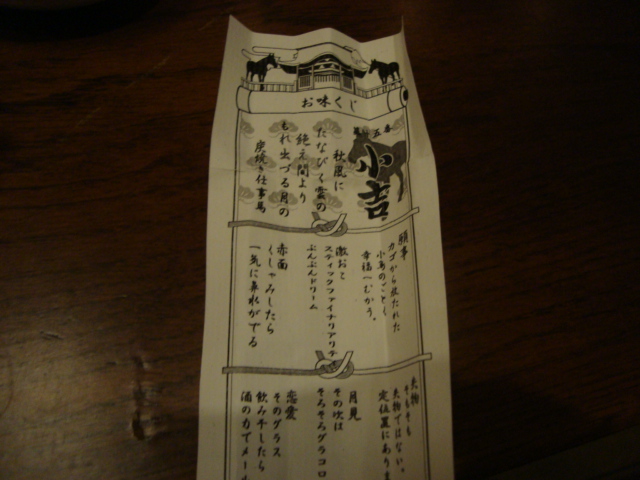 お味くじ
第五番
小吉
秋風に
たなびく雲の
絶え間より
もれ出づる月の
炭焼き仕事馬
願事
カゴから放たれた
小鳥のごとく
幸福へむかう。
激おこ
スティックファイナリアリテ
ぷんぷんドリーム
赤面
くしゃみしたら
一気に鼻水がでる
失物
そもそも
失物ではない。
定位置にありま
月見
その次は
そろそろグラコロ
恋愛
そのグラス
飲み干したら
酒の力でメール